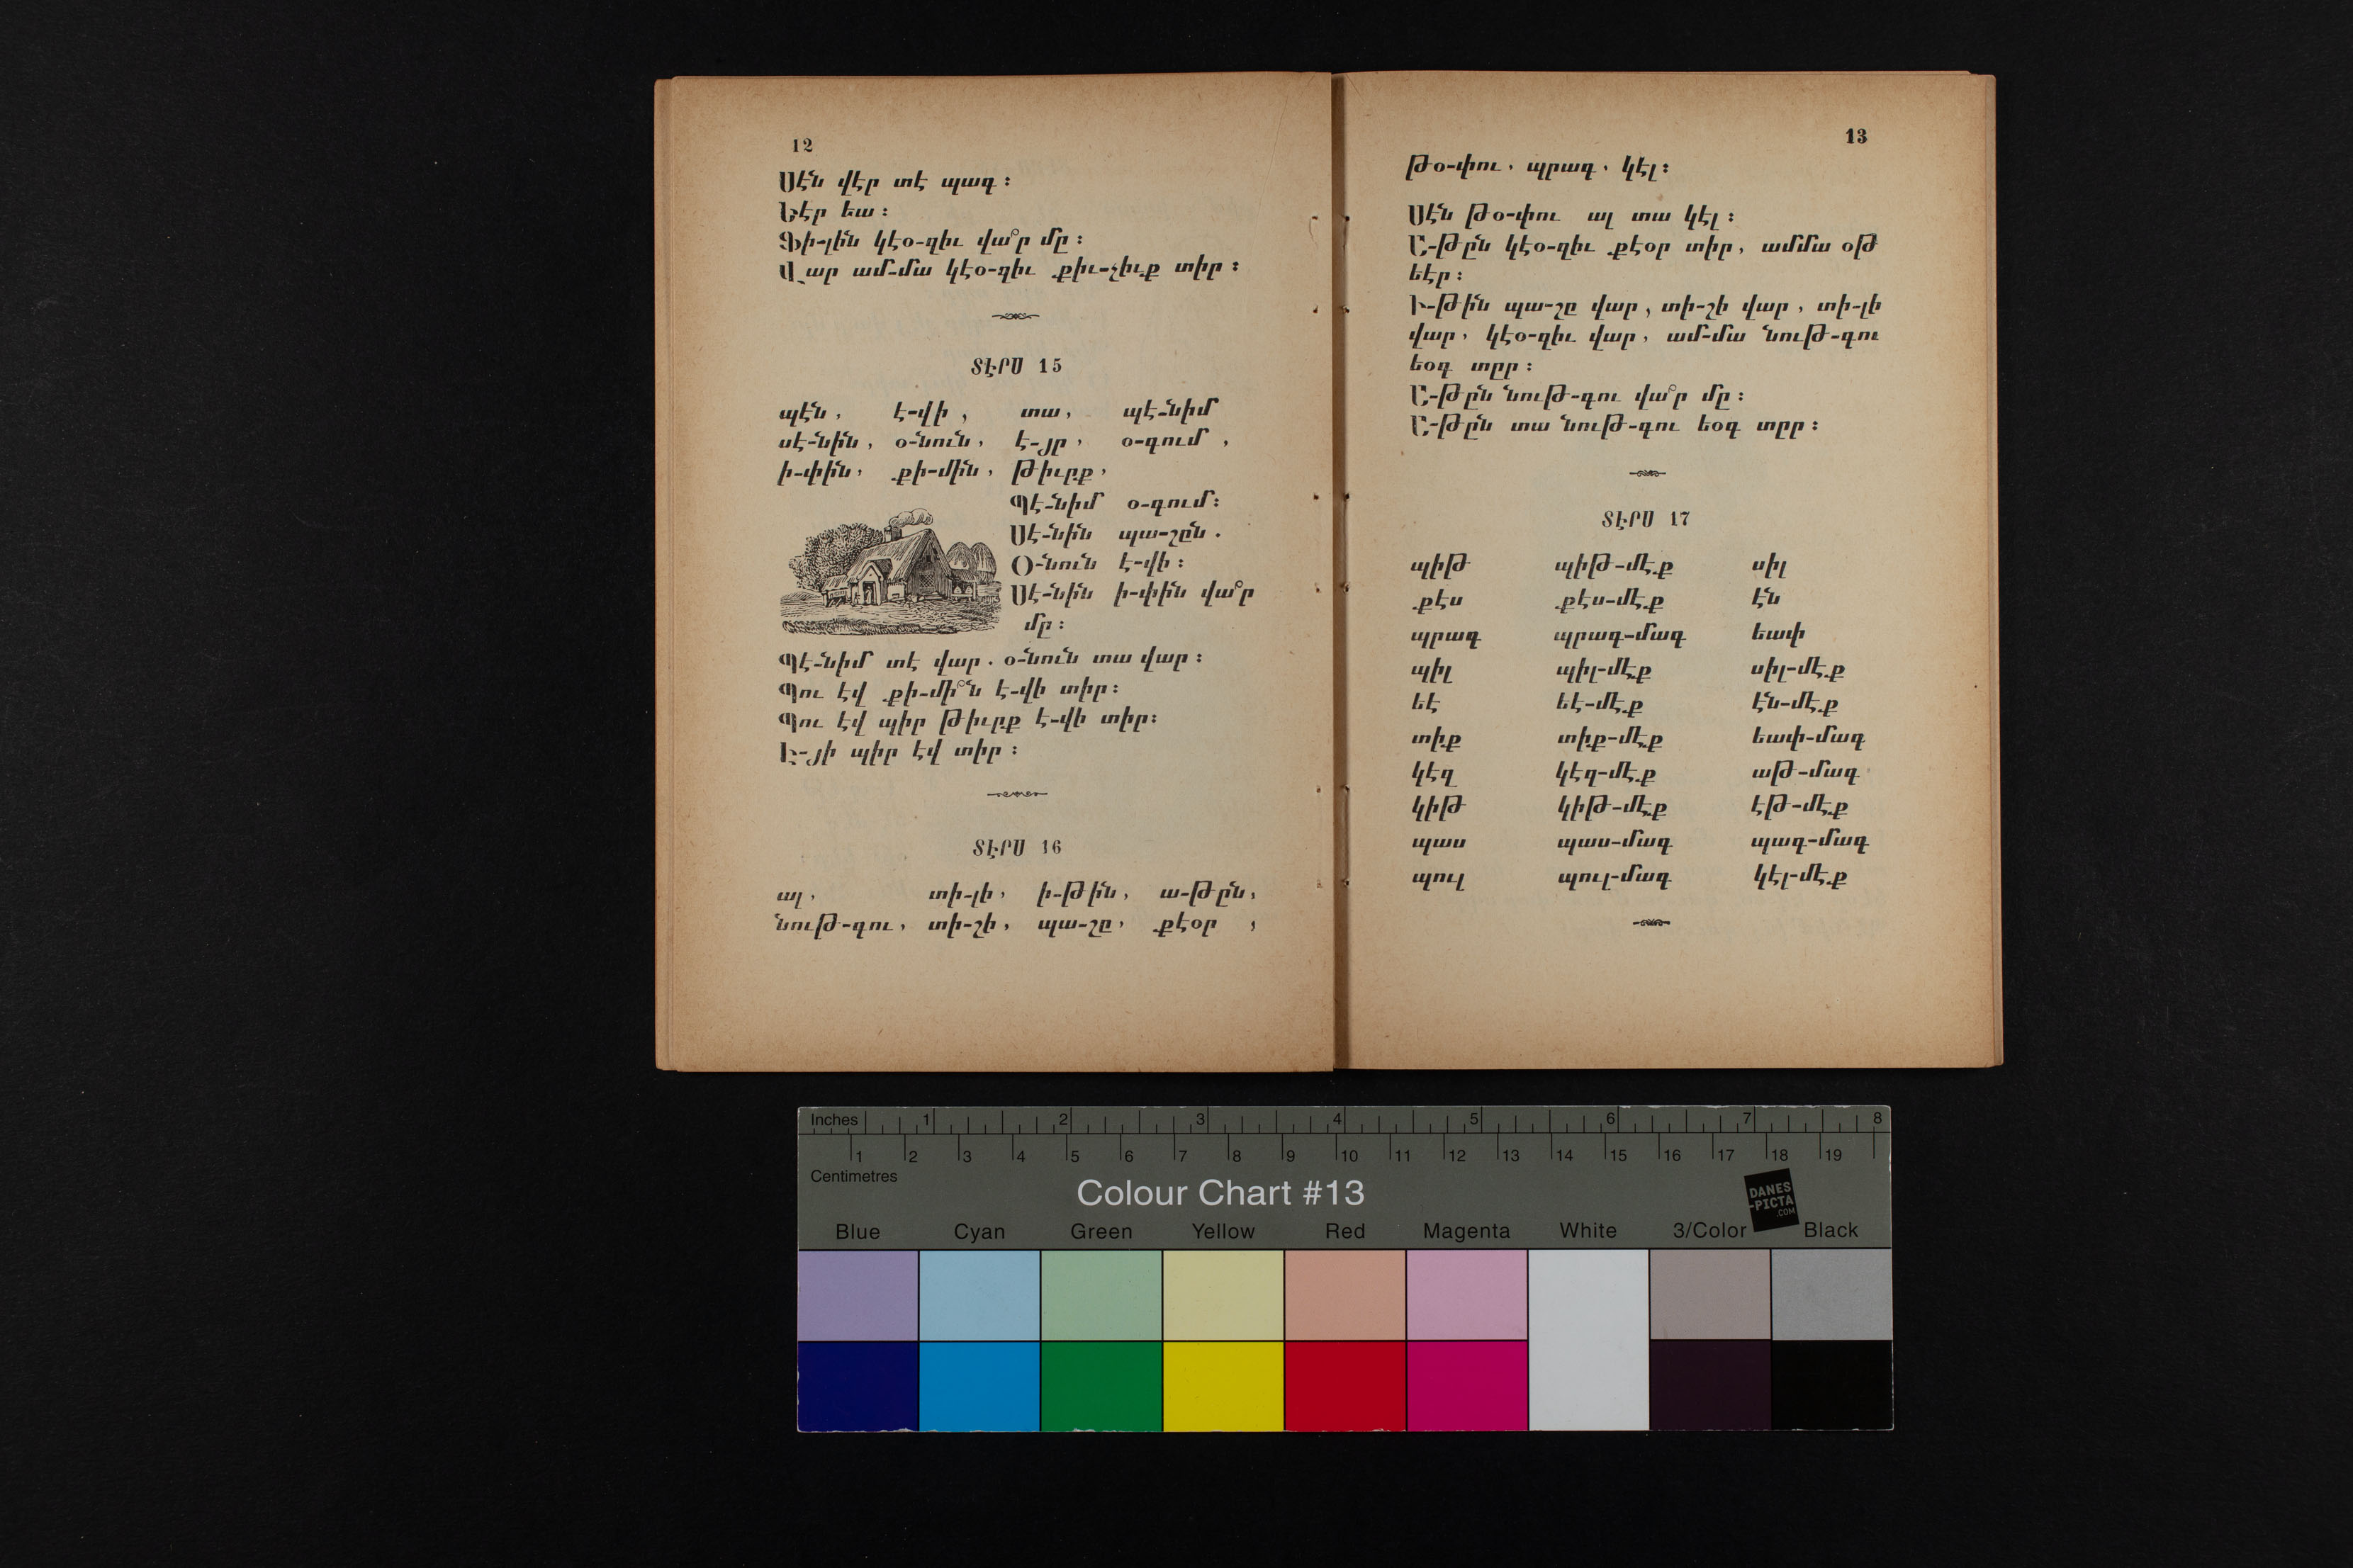 12
Սէն վէր տէ պագ ։
Նէր եա ։
Ֆի-լին կէօ-զիւ վա՞ր մը ։
Վար ամ-մա կէօ-զիւ քիւ-չիւք տիր ։
ՏԷՐՍ 15
պէն , է-վի , տա , պէ-նիմ
սէ-նին , օ-նուն , է-յր , օ-գում ,
ի-փին , քի-մին , Թիւրք ,
Պէ-նիմ օ-գում ։
Սէ-նին պա-շըն .
Օ-նուն է-վի ։
Սէ-նին ի-փին վա՞ր
մը ։
Պէ-նիմ տէ վար . օ-նուն տա վար ։
Պու էվ քի-մի՞ն է-վի տիր ։
Պու էվ պիր Թիւրք է-վի տիր ։
Է-յի պիր էվ տիր ։
ՏԷՐՍ 16
ալ , տի-լի , ի-թին , ա-թըն ,
նութ-գու , տի-շի , պա-շը , քէօր ,
13
թօ-փու , պրագ , կէլ ։
Սէն թօ-փու ալ տա կէլ ։
Ա-թըն կէօ-զիւ քէօր տիր , ամմա օթ
եէր ։
Ի-թին պա-շը վար , տի-շի վար , տի-լի
վար , կէօ-զիւ վար , ամ-մա նութ-գու
եօգ տըր ։
Ա-թըն նութ-գու վա՞ր մը ։
Ա-թըն տա նութ-գու եօգ տըր ։
ՏԷՐՍ 17
պիթ պիթ-մէք սիլ
քէս քէս-մէք էն
պրագ պրագ-մագ եափ
պիլ պիլ-մէք սիլ-մէք
եէ եէ-մէք էն-մէք
տիք տիք-մէք եափ-մագ
կէզ կէզ-մէք աթ-մագ
կիթ կիթ-մէք էթ-մէք
պաս պաս-մագ պագ-մագ
պուլ պուլ-մագ կէլ-մէք
Inches 1 2 3 4 5 6 7 8
1 2 3 4 5 6 7 8 9 10 11 12 13 14 15 16 17 18 19
Centimetres
Colour Chart #13
DANES
-PICTA
.COM
Blue Cyan Green Yellow Red Magenta White 3/Color Black